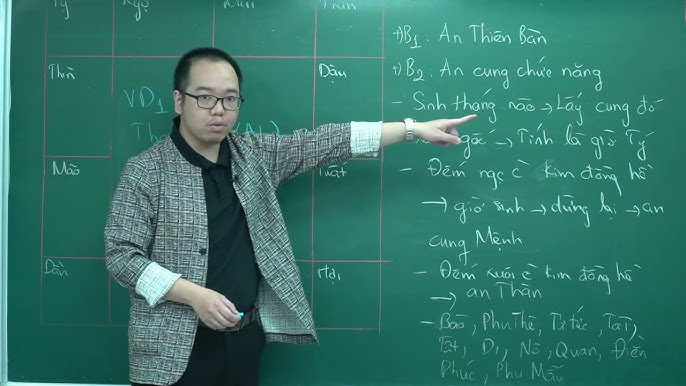 Tỵ Ngọ Mùi Thân
Thìn
Dậu
VD1
Mão
Tuất
Dần
Hợi
+) B1: An Thiên Bàn
+) B2: An cung chức năng
- Sinh tháng nào → Lấy cung đó
gốc → Tính là giờ Tý
- Đếm ngc c kim đồng hồ
→ giờ sinh → dừng lại → an
cung Mệnh
- Đếm xuôi c kim đồng hồ
→ an Thân
- Bào, Phu Thê, Tử tức, Tài,
Tật, Di, Nô, Quan, Điền
Phúc, Phụ Mẫu